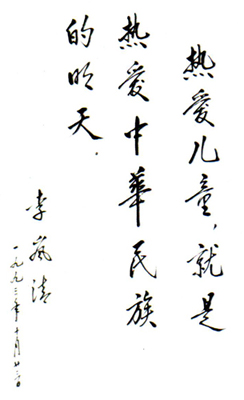 热爱儿童,就是
热爱中華民族
的明天.
李岚清
一九九三年十月